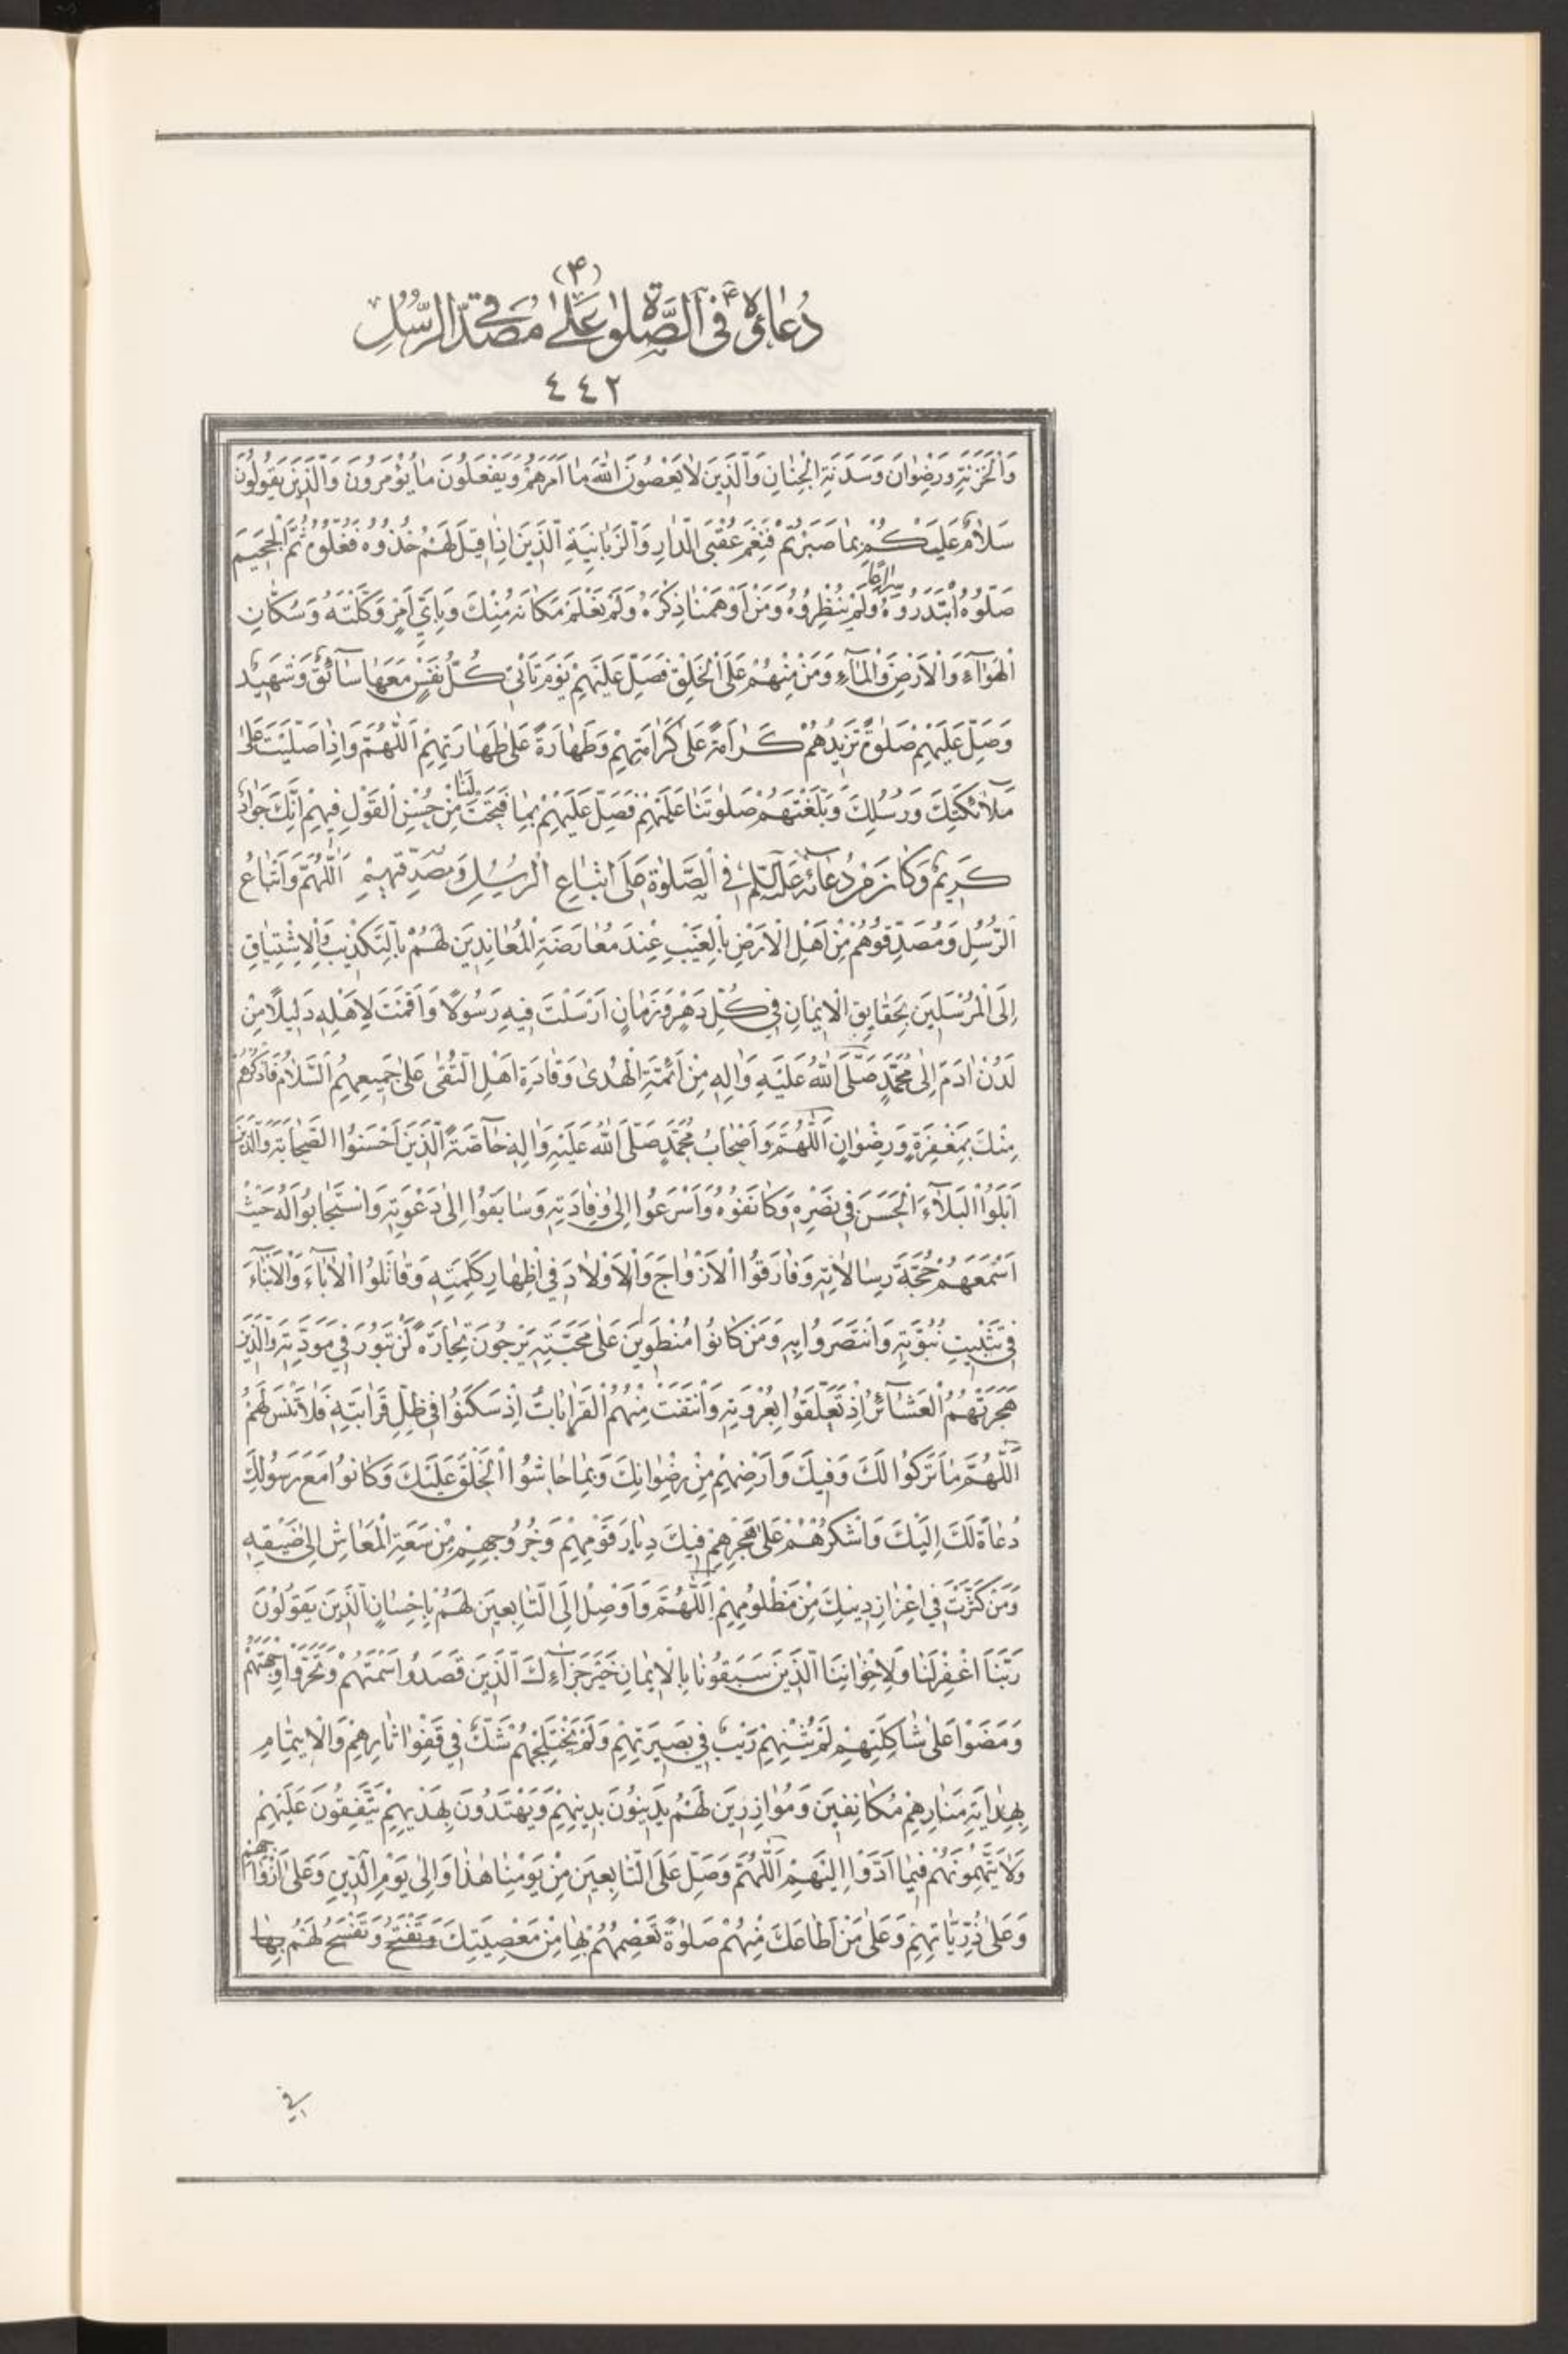 (۴)
دُعاؤُهُ ع فِی الصَّلوٰةِ عَلیٰ مُصَدِّقِی الرُّسُلِ
٤٤٢
وَالْخَزَنَةِ وَرِضْوٰانَ وَسَدَنَةِ الْجِنٰانِ وَالَّذِينَ لٰا يَعْصُونَ اللّٰهَ مٰا اَمَرَهُمْ وَيَفْعَلُونَ مٰا يُؤْمَرُونَ وَالَّذِينَ يَقُولُونَ
سَلٰامٌ عَلَيْكُمْ بِمٰا صَبَرْتُمْ فَنِعْمَ عُقْبَى الدّٰارِ وَالزَّبٰانِيَةِ الَّذِينَ اِذٰا قِيلَ لَهُمْ خُذُوهُ فَغُلُّوهُ ثُمَّ الْجَحِيمَ
صَلُّوهُ ابْتَدَرُوهُ سِرٰاعًا وَلَمْ يُنْظِرُوهُ وَمَنْ اَوْهَمْنٰا ذِكْرَهُ وَلَمْ نَعْلَمْ مَكٰانَهُ مِنْكَ وَبِاَيِّ اَمْرٍ وَكَّلْتَهُ وَسُكّٰانِ
الْهَوٰآءِ وَالْاَرْضِ وَالْمٰآءِ وَمَنْ مِنْهُمْ عَلَى الْخَلْقِ فَصَلِّ عَلَيْهِمْ يَوْمَ تَأْتِي كُلُّ نَفْسٍ مَعَهٰا سٰآئِقٌ وَشَهِيدٌ
وَصَلِّ عَلَيْهِمْ صَلٰوةً تَزِيدُهُمْ كَرٰامَةً عَلىٰ كَرٰامَتِهِمْ وَطَهٰارَةً عَلىٰ طَهٰارَتِهِمْ اَللّٰهُمَّ وَاِذٰا صَلَّيْتَ عَلىٰ
مَلٰآئِكَتِكَ وَرُسُلِكَ وَبَلَّغْتَهُمْ صَلٰوتَنٰا عَلَيْهِمْ فَصَلِّ عَلَيْهِمْ بِمٰا فَتَحْتَ لَنٰا مِنْ حُسْنِ الْقَوْلِ فِيهِمْ اِنَّكَ جَوٰادٌ
كَرِيمٌ وَكٰانَ مِنْ دُعٰائِهِ عَلَيْهِ السَّلٰمُ فِي الصَّلٰوةِ عَلىٰ اَتْبٰاعِ الرُّسُلِ وَمُصَدِّقِيهِمْ اَللّٰهُمَّ وَاَتْبٰاعُ
الرُّسُلِ وَمُصَدِّقُوهُمْ مِنْ اَهْلِ الْاَرْضِ بِالْغَيْبِ عِنْدَ مُعٰارَضَةِ الْمُعٰانِدِينَ لَهُمْ بِالتَّكْذِيبِ وَالْاِشْتِيٰاقِ
اِلَى الْمُرْسَلِينَ بِحَقٰايِقِ الْايمٰانِ فِي كُلِّ دَهْرٍ وَزَمٰانٍ اَرْسَلْتَ فِيهِ رَسُولًا وَاَقَمْتَ لِاَهْلِهِ دَلِيلًا مِنْ
لَدُنْ اٰدَمَ اِلىٰ مُحَمَّدٍ صَلَّى اللّٰهُ عَلَيْهِ وَاٰلِهِ مِنْ اَئِمَّةِ الْهُدىٰ وَقٰادَةِ اَهْلِ التُّقىٰ عَلىٰ جَمِيعِهِمُ السَّلٰامُ فَاذْكُرْهُمْ
مِنْكَ بِمَغْفِرَةٍ وَرِضْوٰانٍ اَللّٰهُمَّ وَاَصْحٰابُ مُحَمَّدٍ صَلَّى اللّٰهُ عَلَيْهِ وَاٰلِهِ خٰآصَّةً الَّذِينَ اَحْسَنُوا الصَّحٰابَةَ وَالَّذِينَ
اَبْلَوُا الْبَلٰآءَ الْحَسَنَ فِي نَصْرِهِ وَكٰانَفُوهُ وَاَسْرَعُوا اِلىٰ وِفٰادَتِهِ وَسٰابَقُوا اِلىٰ دَعْوَتِهِ وَاسْتَجٰابُوا لَهُ حَيْثُ
اَسْمَعَهُمْ حُجَّةَ رِسٰالٰاتِهِ وَفٰارَقُوا الْاَزْوٰاجَ وَالْاَوْلٰادَ فِي اِظْهٰارِ كَلِمَتِهِ وَقٰاتَلُوا الْاٰبٰآءَ وَالْاَبْنٰآءَ
فِي تَثْبِيتِ نُبُوَّتِهِ وَانْتَصَرُوا بِهِ وَمَنْ كٰانُوا مُنْطَوِينَ عَلىٰ مَحَبَّتِهِ يَرْجُونَ تِجٰارَةً لَنْ تَبُورَ فِي مَوَدَّتِهِ وَالَّذِينَ
هَجَرَتْهُمُ الْعَشٰآئِرُ اِذْ تَعَلَّقُوا بِعُرْوَتِهِ وَانْتَفَتْ مِنْهُمُ الْقَرٰابٰاتُ اِذْ سَكَنُوا فِي ظِلِّ قَرٰابَتِهِ فَلٰا تَنْسَ لَهُمُ
اَللّٰهُمَّ مٰا تَرَكُوا لَكَ وَفِيكَ وَاَرْضِهِمْ مِنْ رِضْوٰانِكَ وَبِمٰا حٰاشُوا الْخَلْقَ عَلَيْكَ وَكٰانُوا مَعَ رَسُولِكَ
دُعٰاةً لَكَ اِلَيْكَ وَاشْكُرْهُمْ عَلىٰ هَجْرِهِمْ فِيكَ دِيٰارَ قَوْمِهِمْ وَخُرُوجِهِمْ مِنْ سَعَةِ الْمَعٰاشِ اِلىٰ ضَيْقِهِ
وَمَنْ كَثَّرْتَ فِي اِعْزٰازِ دِينِكَ مِنْ مَظْلُومِهِمْ اَللّٰهُمَّ وَاَوْصِلْ اِلَى التّٰابِعِينَ لَهُمْ بِاِحْسٰانٍ الَّذِينَ يَقُولُونَ
رَبَّنَا اغْفِرْلَنٰا وَلِاِخْوٰانِنَا الَّذِينَ سَبَقُونٰا بِالْايمٰانِ خَيْرَ جَزٰآءِكَ الَّذِينَ قَصَدُوا سَمْتَهُمْ وَتَحَرَّوْا وِجْهَتَهُمْ
وَمَضَوْا عَلىٰ شٰاكِلَتِهِمْ لَمْ يَثْنِهِمْ رَيْبٌ فِي بَصِيرَتِهِمْ وَلَمْ يَخْتَلِجْهُمْ شَكٌّ فِي قَفْوِ اٰثٰارِهِمْ وَالْايتِمٰامِ
بِهِدٰايَةِ مَنٰارِهِمْ مُكٰانِفِينَ وَمُوٰازِرِينَ لَهُمْ يَدِينُونَ بِدِينِهِمْ وَيَهْتَدُونَ بِهَدْيِهِمْ يَتَّفِقُونَ عَلَيْهِمْ
وَلٰا يَتَّهِمُونَهُمْ فِيمٰا اَدَّوْا اِلَيْهِمْ اَللّٰهُمَّ وَصَلِّ عَلَى التّٰابِعِينَ مِنْ يَوْمِنٰا هٰذٰا وَاِلىٰ يَوْمِ الدِّينِ وَعَلىٰ اَزْوٰاجِهِمْ
وَعَلىٰ ذُرِّيّٰاتِهِمْ وَعَلىٰ مَنْ اَطٰاعَكَ مِنْهُمْ صَلٰوةً تَعْصِمُهُمْ بِهٰا مِنْ مَعْصِيَتِكَ وَتَفْتَحُ وَتَفْسَحُ لَهُمْ بِهٰا
فی